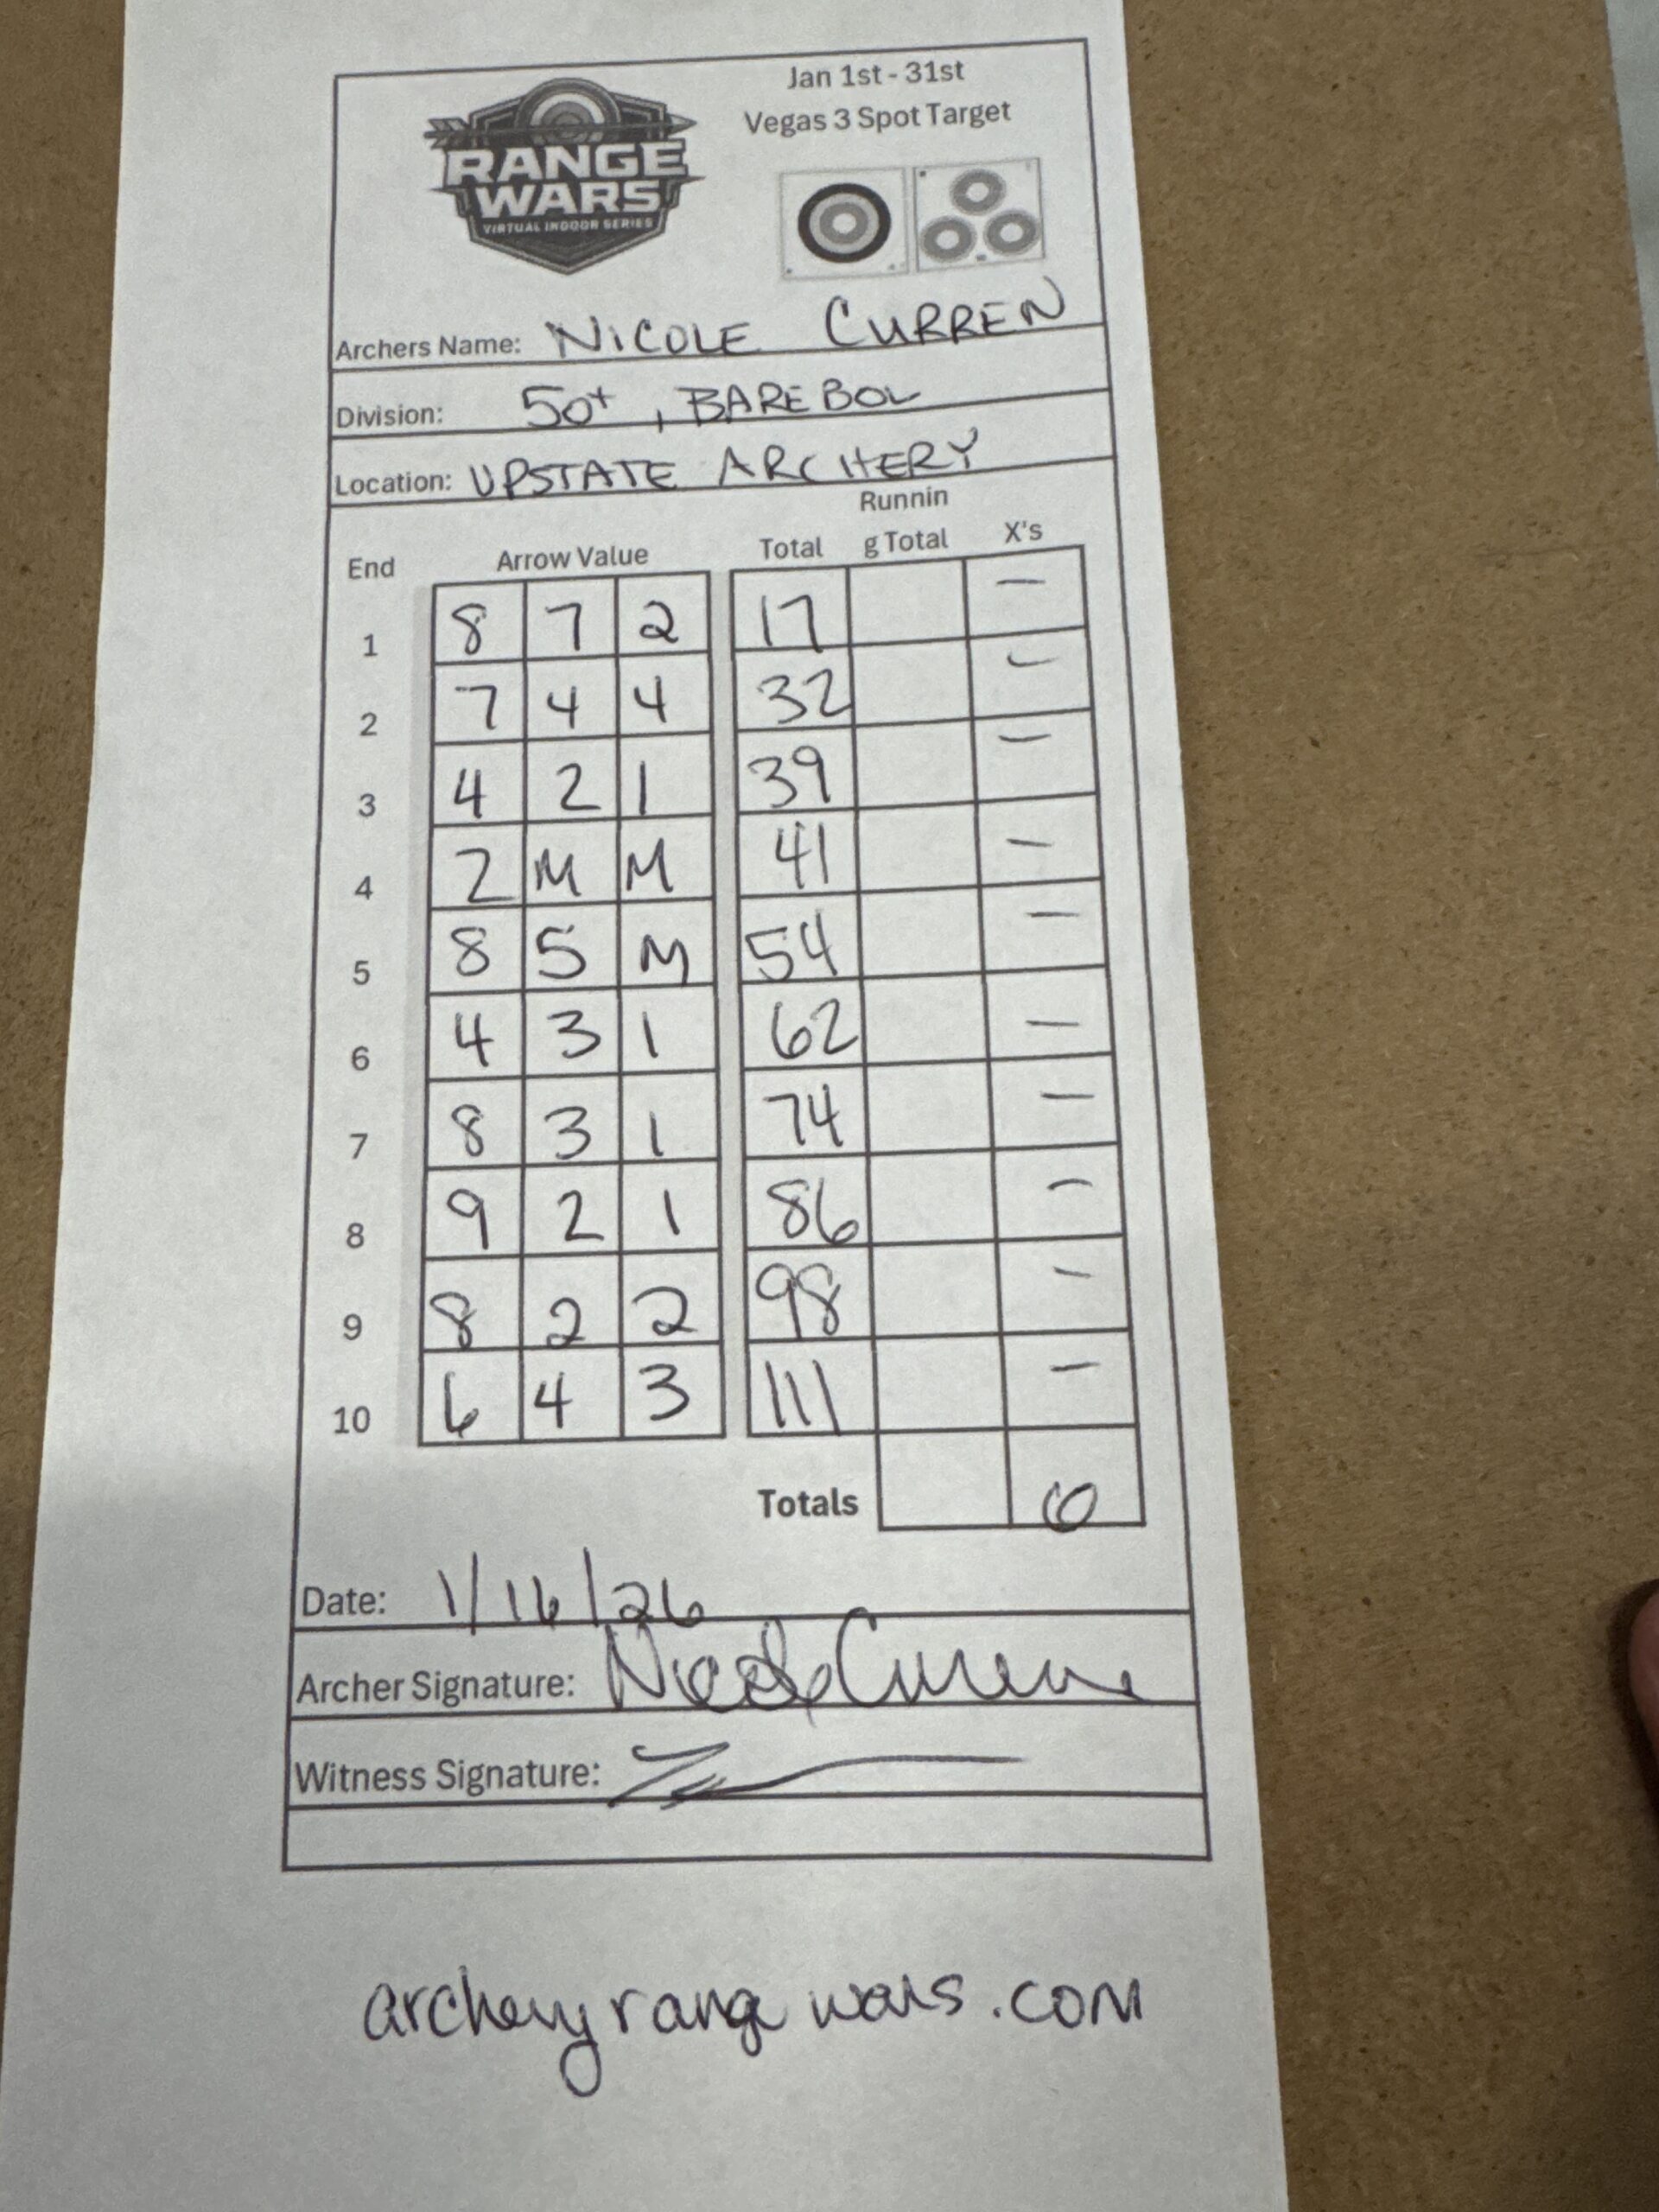 Jan 1st - 31st
Vegas 3 Spot Target
RANGE
WARS
VIRTUAL INDOOR SERIES
Archers Name: NICOLE CURREN
Division: 50+, BAREBOW
Location: UPSTATE ARCHERY
End Arrow Value Total Runnin g Total X's
1 8 7 2 17 —
2 7 4 4 32 —
3 4 2 1 39 —
4 2 M M 41 —
5 8 5 M 54 —
6 4 3 1 62 —
7 8 3 1 74 —
8 9 2 1 86 —
9 8 2 2 98 —
10 6 4 3 111 —
Totals 0
Date: 1/16/26
Archer Signature: Nicole Curren
Witness Signature:
archeryrangewars.com